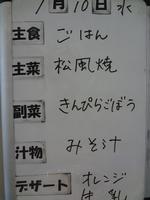 1月10日 水
主食 ごはん
主菜 松風焼
副菜 きんぴらごぼう
汁物 みそ汁
デザート オレンジ
牛乳